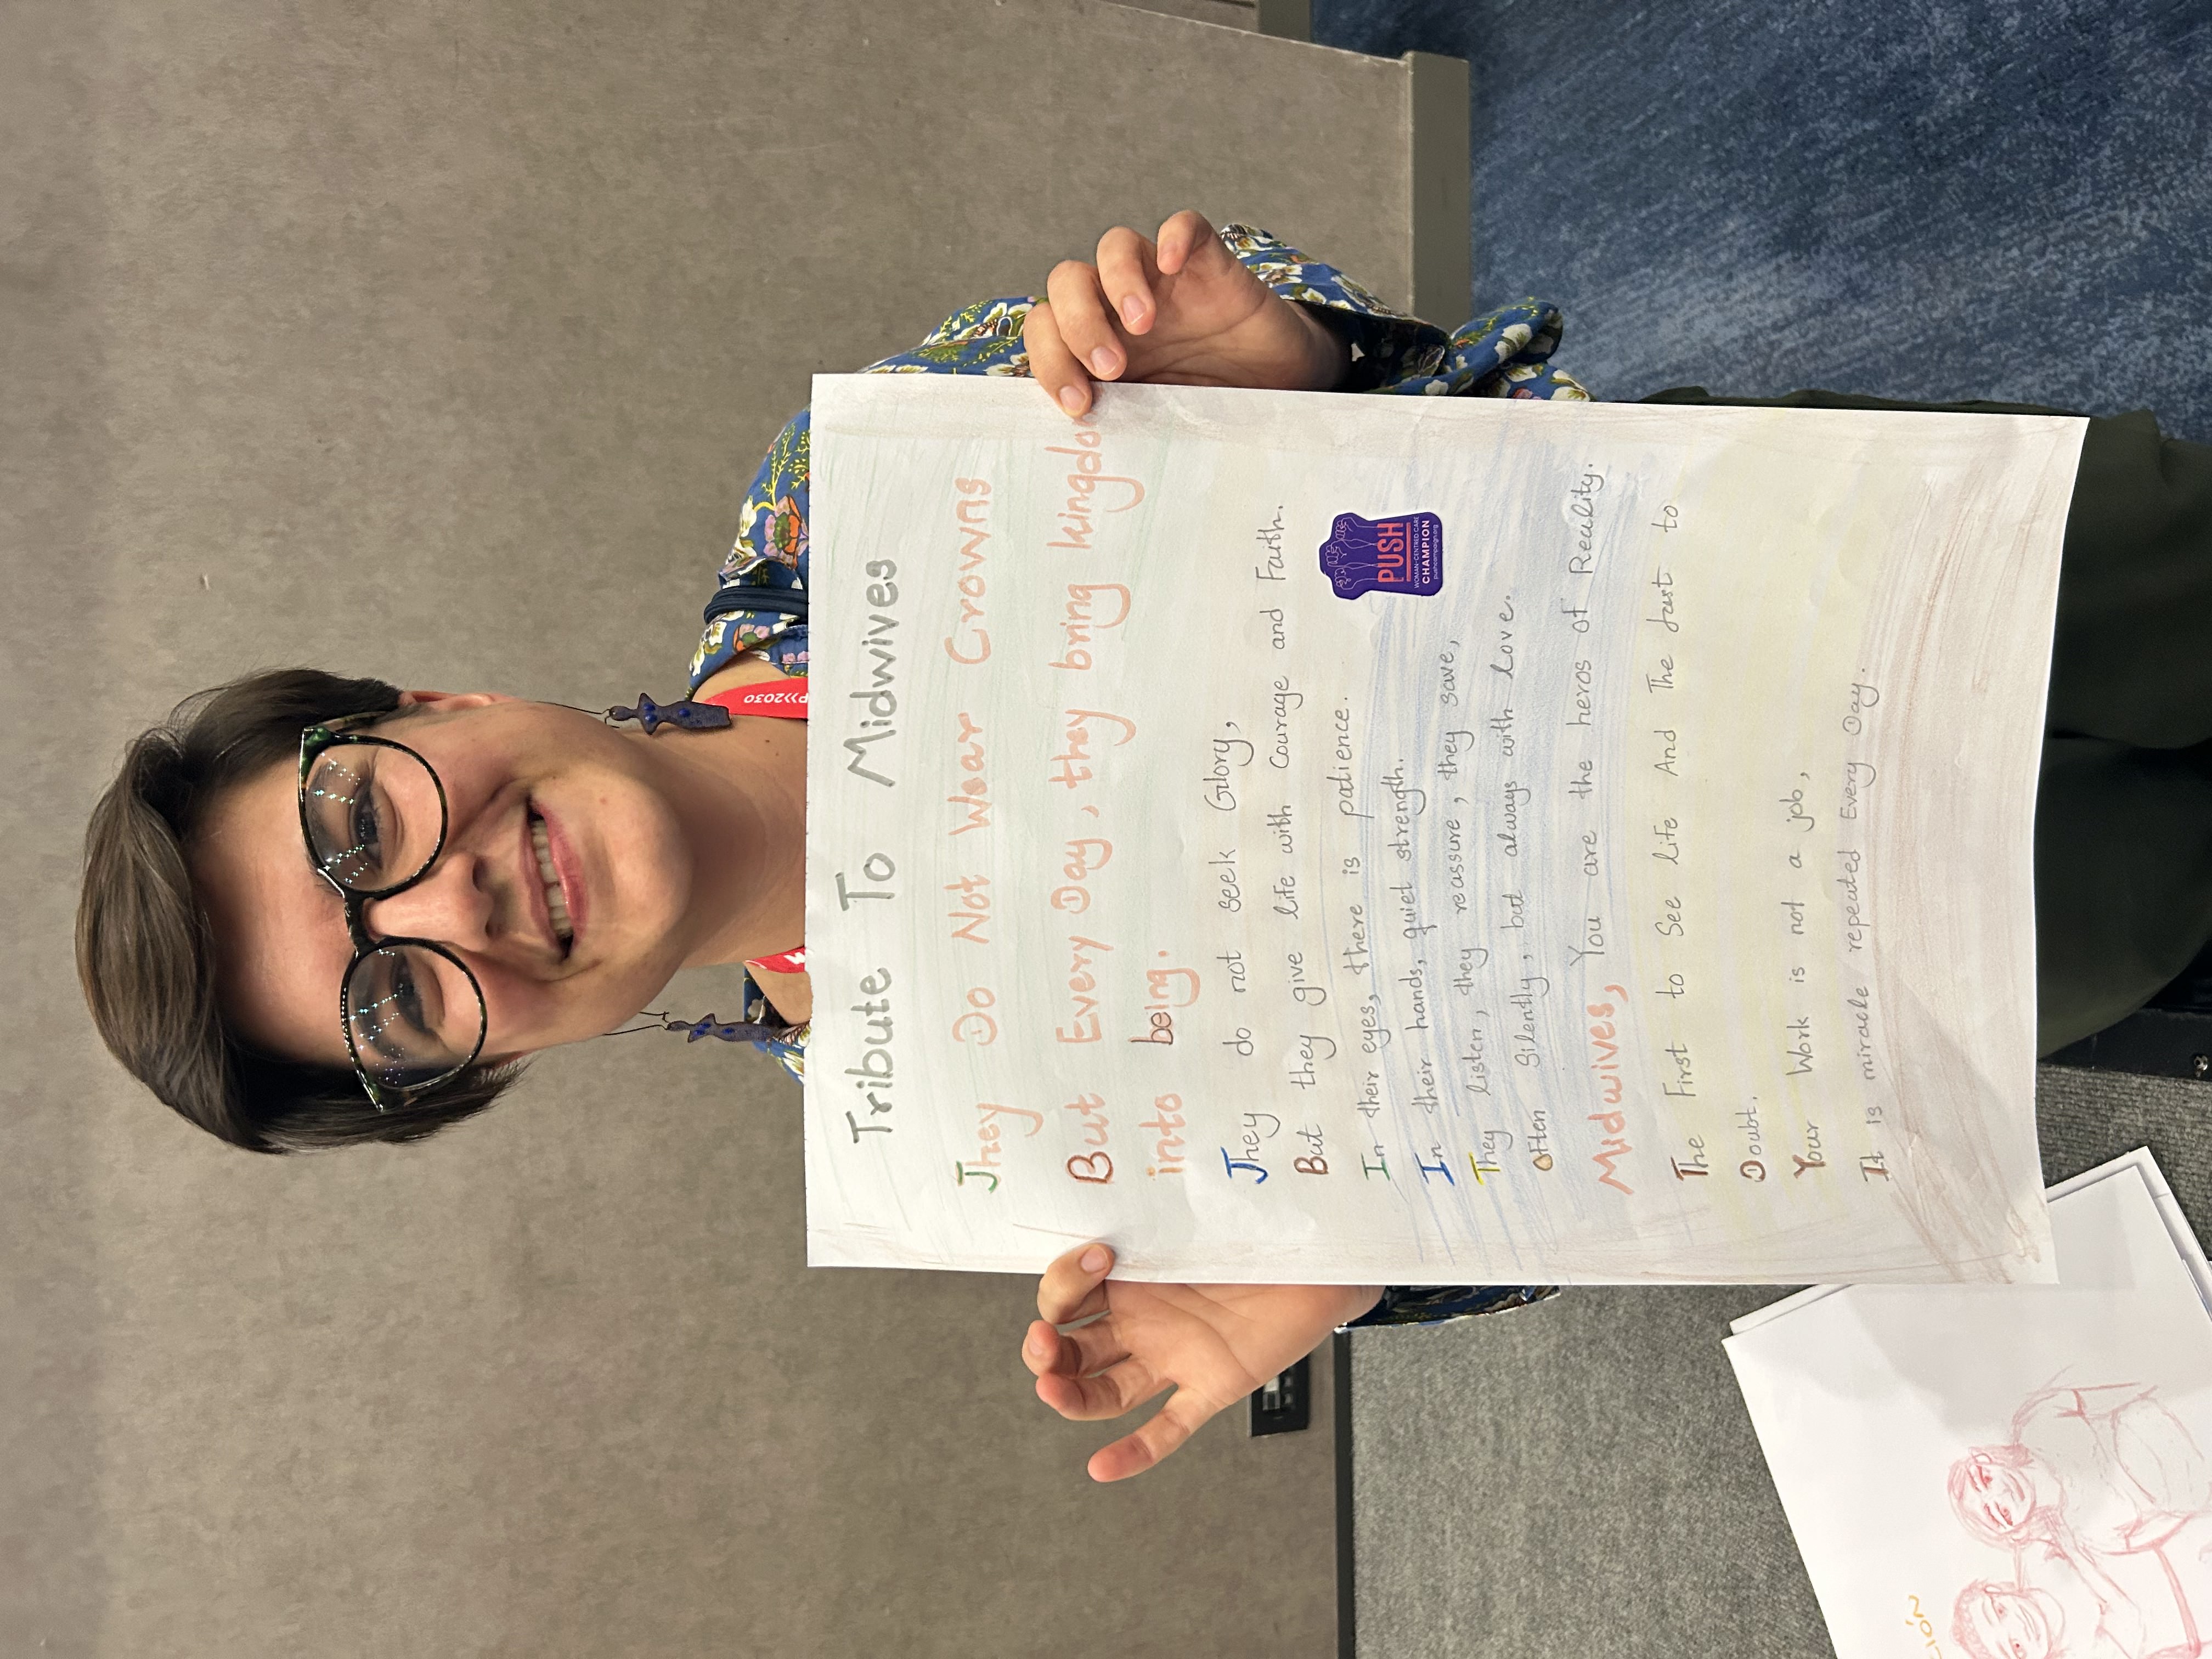 Tribute To Midwives
They Do Not Wear Crowns
But Every Day, they bring kingdo
into being.
They do not seek Glory,
But they give life with Courage and Faith.
In their eyes, there is patience.
In their hands, quiet strength.
They listen, they reassure, they save,
Often Silently, but always with love.
Midwives, You are the heros of Reality.
The First to See life And The last to
Doubt.
Your Work is not a job,
It is miracle repeated Every Day.
PUSH
WOMAN-CENTRED CARE
CHAMPION
pushcampaign.org
P)))2030